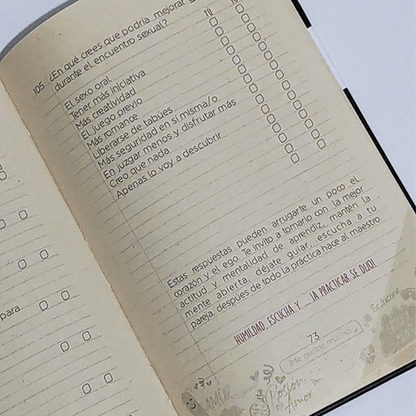 105 ¿En qué crees que podría mejorar
durante el encuentro sexual?
TÚ
El sexo oral
Tener más iniciativa
Más creatividad
El juego previo
Más romance
Liberarse de tabúes
Más seguridad en sí misma/o
En juzgar menos y disfrutar más
Creo que nada
Apenas lo voy a descubrir
Estas respuestas pueden arrugarte un poco el
corazón y el ego. Te invito a tomarlo con la mejor
actitud y mentalidad de aprendiz, mantén la
mente abierta, déjate guiar, escucha a tu
pareja, después de todo la práctica hace al maestro
HUMILDAD, ESCUCHA Y ... ¡A PRACTICAR SE DIJO!
73
¡Me gustas mucho!
para
AMOR
Poción
de Amor